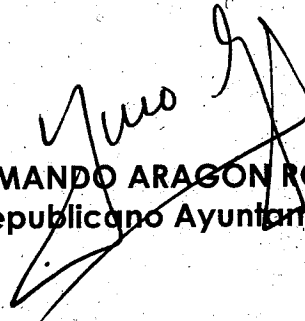 MANDO ARAGON RO
epublicano Ayuntam